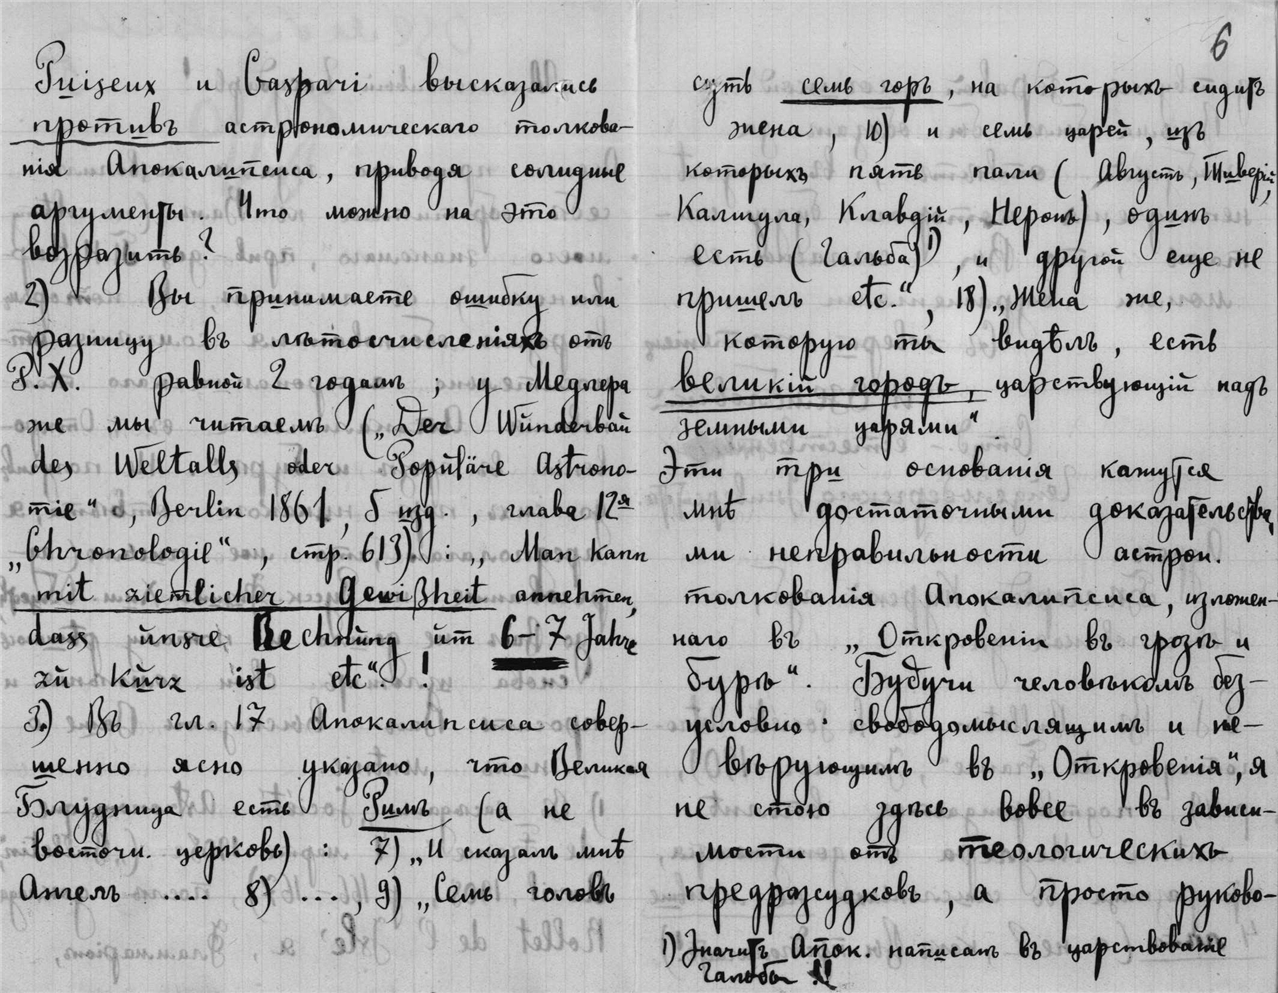 Puiseux и Gaspari высказались
противъ астрономическаго толкова-
нія Апокалипсиса, приводя солидные
аргументы. Что можно на это
возразить?
2) Вы принимаете ошибку или
разницу въ лѣтосчисленіяхъ отъ
Р. Х. равной 2 годамъ; у Медлера
же мы читаемъ („Der Wunderbau
des Weltalls oder Populäre Astrono-
mie“, Berlin 1861, 5 изд., глава 12я
„Chronologie“, стр. 613): „Man kann
mit ziemlicher Gewißheit annehmen,
dass unsre Rechnung um 6–7 Jahre
zu kurz ist etc“. !
3.) Въ гл. 17 Апокалипсиса совер-
шенно ясно указано, что Великая
Блудница есть Римъ (а не
восточн. церковь): 7) „И сказалъ мнѣ
Ангелъ .... 8) ..., 9) „Семь головъ
6
суть семь горъ, на которыхъ сидитъ
жена, 10) и семь царей, изъ
которыхъ пять пали (Августъ, Тиверій,
Калигула, Клавдій, Неронъ), одинъ
есть (Гальба)1), и другой еще не
пришелъ etc.“, 18) „Жена же,
которую ты видѣлъ, есть
великій городъ, царствующій надъ
земными царями“.
Эти три основанія кажутся
мнѣ достаточными доказательства-
ми неправильности астрон.
толкованія Апокалипсиса, изложен-
наго въ „Откровеніи въ грозѣ и
бурѣ“. Будучи человѣкомъ без-
условно свободомыслящимъ и не-
вѣрующимъ въ „Откровенія“, я
не стою здѣсь вовсе въ зависи-
мости отъ теологическихъ
предразсудковъ, а просто руково-
1) Значитъ Апок. написанъ въ царствованіе
Гальбы !!